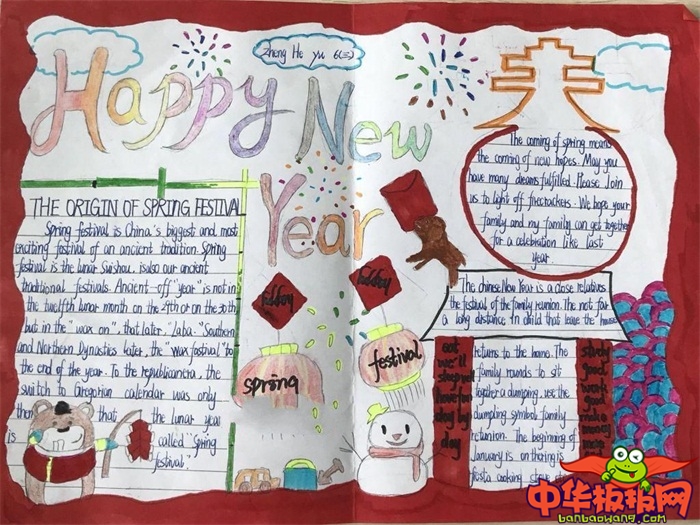 Happy New
Year
Zheng He yu 6(三)
THE ORIGIN OF SPRING FESTIVAL
Spring festival is China's biggest and most
exciting festival of an ancient tradition. Spring
festival is the lunar Suishou, isalso our ancient
traditional festivals. Ancient-off "year" is not in
the twelfth lunar month on the 29th or on the 30th
but in the "wax on", that later "Laba." Southern
and Northern Dynastics later, the "wax fastival" to
the end of the year. To the republicanera, the
switch to Gregorian calendar was only
then that the lunar year
is called "Spring
festival."
spring
festival
The coming of spring means
the coming of new hopes. May you
have many dreams fulfilled. Please Join
us to light off firecrackers. We hope your
family and my family can get together
for a celebration like last
year
The chinese New Year is a close relatives
the festival of the family reunion. The not far
a long distance in child that leave the house
returns to the home. The
family rounds to sit
together a dumpling, use the
dumpling symbol family
retunion. The beginning of
January is on the
fiesta cooking
eat
we'll
sleep well
have fun
day by
day
study
good
work
good
make
money
more
中华板报网
banbaowang.com